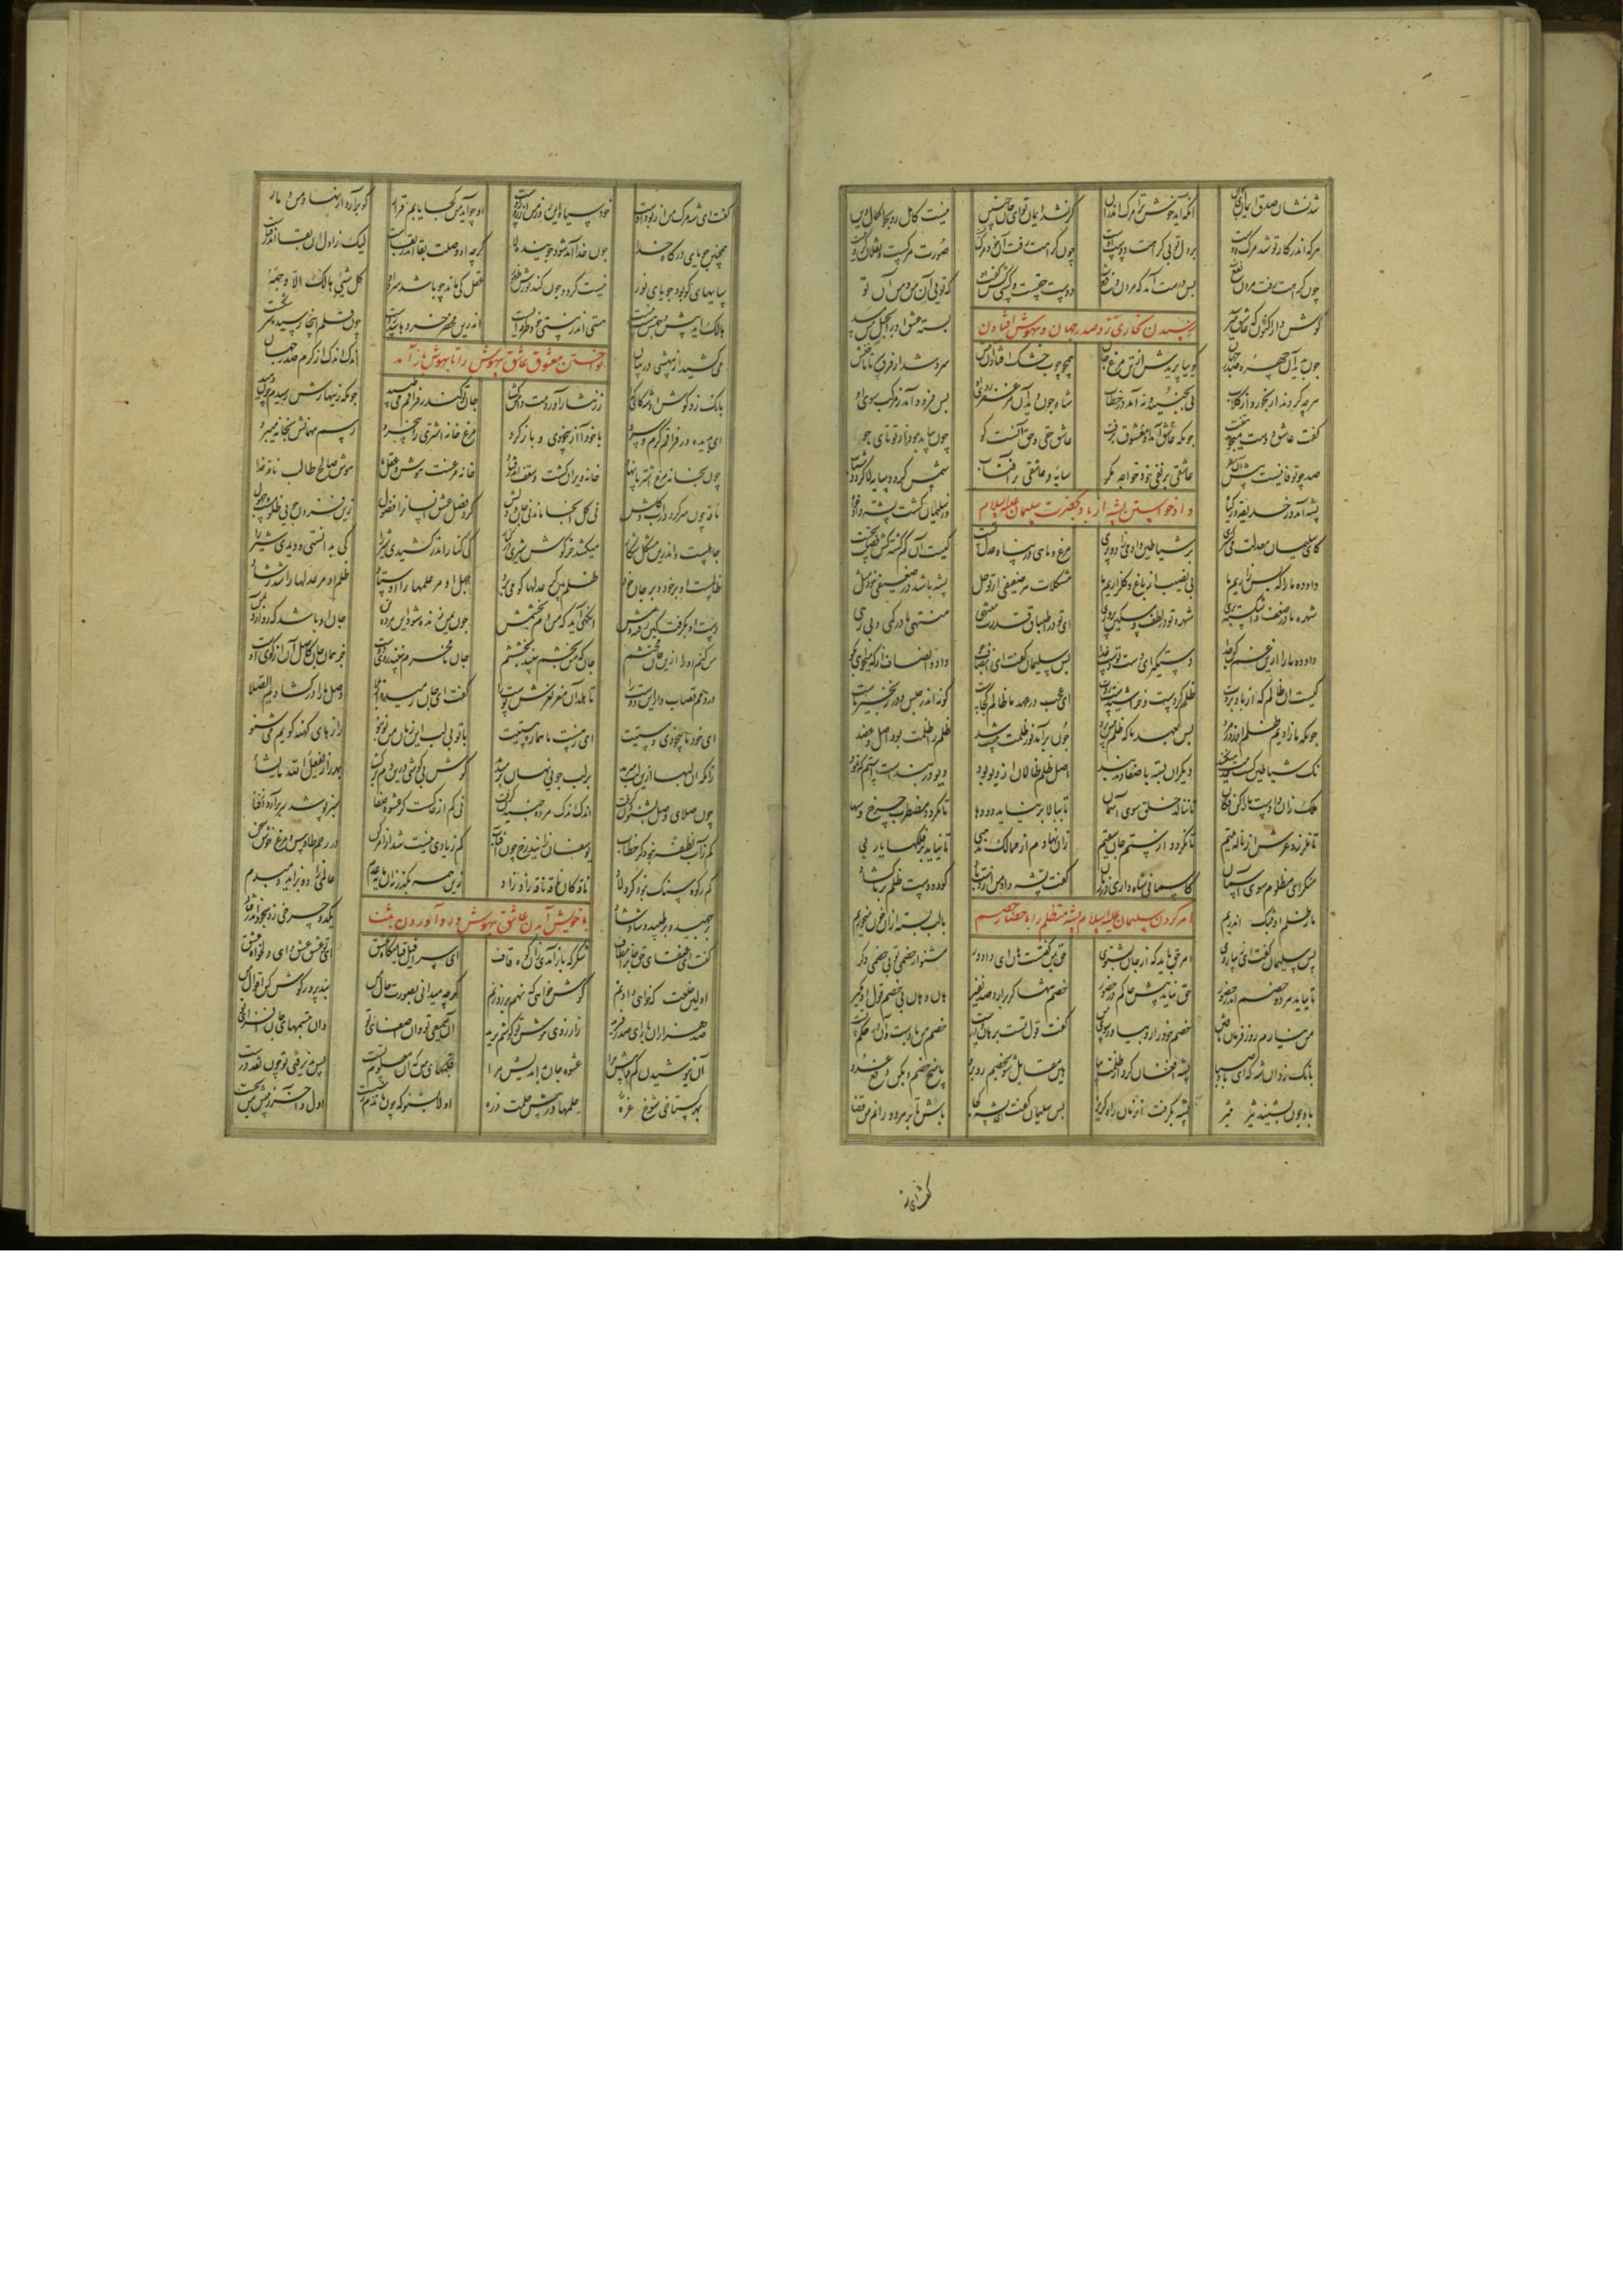 شد نشان صدق ایمان ای جوان آنکه آید خوش ترا مرگ اندران گر نشد ایمان تو ای جان چنین نیست کامل رو بجو اکمال دین
هرکه اندر کار تو شد مرگ دوست بر دل تو بی کراهت دوست اوست چون کراهت رفت آن خود مرگ نیست صورت مرگست و نقلان کردنیست
چون کراهت رفت مردن نفع شد پس درست آمد که مردن دفع شد دوست حقست و کسی کش گفت او که تویی آن من و من آن تو
گوش دار اکنون که عاشق میرسد بسته عشق او را بحبل من مسد
رسیدن بخاری نزد صدر جهان و بیهوش افتادن
چون بدید آن چهره صدر جهان گوییا پریدش از تن مرغ جان همچو چوب خشک افتاد آن تنش سرد شد از فرق سر تا ناخنش
هرچه کردند از بخور و از گلاب نی بجنبید و نه آمد در خطاب شاه چون دید آن مزعفر روی او پس فرود آمد ز مرکب سوی او
گفت عاشق دوست میجوید بتفت چونکه عاشق آمد و معشوق رفت عاشق حقی و حق آنست کو چون بیاید نبود از تو تای مو
صد چو تو فانیست پیش آن نظر عاشقی بر نفی خود خواجه مگر سایه و عاشقی بر آفتاب شمس گردد سایه لا گردد شتاب
پشه آمد از حدیقه وز گیاه وز سلیمان گشت پشه دادخواه
دادخواستن پشه از باد بحضرت سلیمان علیه السلام
کای سلیمان معدلت میگستری بر شیاطین و آدمی زاد و پری مرغ و ماهی در پناه عدل تست کیست آن گم گشته کش فضلت نجست
داد ده ما را که بس زاریم ما بی نصیب از باغ و گلزاریم ما مشکلات هر ضعیفی از تو حل پشه باشد در ضعیفی خود مثل
شهره ما در ضعف و اشکسته پری شهره تو در لطف و مسکین پروری ای تو در اطباق قدرت منتهی منتهی ما در کمی و بی رهی
داد ده ما را ازین غم کن جدا دستگیر ای دست تو دست خدا پس سلیمان گفت ای انصاف جو داد و انصاف از که میخواهی بگو
کیست آن ظالم که از باد بروت ظلم کردست و خراشیدست روت ای عجب در عهد ما ظالم کجاست کو نه اندر حبس و در زنجیر ماست
چونکه ما زادیم ظلم آن روز مرد پس بعهد ما که ظلمی پیش برد چون برآمد نور ظلمت نیست شد ظلم را ظلمت بود اصل و عضد
نک شیاطین کسب و خدمت میکنند دیگران بسته باصفادند و بند اصل ظلم ظالمان از دیو بود دیو در بندست استم چون نمود
ملک زان دادست ما را کن فکان تا ننالد خلق سوی آسمان تا ببالا بر نیاید دودها تا نگردد مضطرب چرخ و سها
تا نلرزد عرش از ناله یتیم تا نگردد از ستم جانی سقیم زان نهادیم از ممالک مذهبی تا نیاید بر فلکها یا ربی
منگر ای مظلوم سوی آسمان کاسمانی شاه داری در زمان گفت پشه داد من از دست باد کو دو دست ظلم بر ما برگشاد
ما ز ظلم او بتنگی اندریم با لب بسته ازو خون میخوریم
امر کردن سلیمان علیه السلام پشه متظلم را باحضار خصم
پس سلیمان گفت ای زیبا دوی امر حق باید که از جان بشنوی حق بمن گفتست هان ای دادور مشنو از خصمی تو بی خصمی دگر
تا نیاید هر دو خصم اندر حضور حق نیاید پیش حاکم در ظهور خصم تنها گر برآرد صد نفیر هان و هان بی خصم قول او مگیر
من نیارم رو ز فرمان تافتن خصم خود را رو بیاور سوی من گفت قول تست برهان درست خصم من بادست و او در حکم تست
بانگ زد آن شه که ای باد صبا پشه افغان کرد از ظلمت بیا هین مقابل شو بخصم و رو برو پاسخ خصم و بکن دفع عدو
باد چون بشنید تیز پشه بگرفت آن زمان راه گریز پس سلیمان گفت ای پشه کجا باش تا بر هر دو رانم من قضا
گفت ای شه
گفت ای شه مرگ من از بود اوست خود سیاه این روز من از دود اوست او چو آید من کجا یابم قرار کو برآرد از نهاد من دمار
همچنین جویای درگاه خدا چون خدا آمد شود جوینده لا گرچه آن وصلت بقا اندر بقاست لیک ز اول آن بقا اندر فناست
سایهای کو بود جویای نور نیست گردد چون کند نورش ظهور عقل کی ماند چو باشد سرده او کل شیء هالک الا وجهه
هالک آید پیش وجهش هست و نیست هستی اندر نیستی خود طرفه ایست اندرین محضر خردها شد ز دست چون قلم اینجا رسید و سر شکست
نواختن معشوق عاشق بیهوش را تا بهوش باز آمد
میکشید از بیهشی در بیان اندک اندک از کرم صدر جهان
بانگ زد در گوش او شه کای گدا زر نثار آوردمت دامن گشا جان تو کاندر فراقم می طپید چونکه زنهارش رسیدم چون رمید
ای بدیده در فراقم گرم و سرد با خود آ از بیخودی و باز گرد مرغ خانه اشتری را بی خرد رسم مهمانش بخانه میبرد
چون بخانه مرغ اشتر پا نهاد خانه ویران گشت و سقف اندر فتاد خانه مرغست هوش و عقل ما هوش صالح طالب ناقه خدا
ناقه چون سر کرد در آب و گلش نی گل آنجا ماند نی جان و دلش کرد فضل عشق انسان را فضول زین فزون جویی ظلومست و جهول
جاهلست و اندرین مشکل شکار میکشد خرگوش شیری در کنار کی کنار اندر کشیدی شیر را گر بدانستی و دیدی شیر را
ظالمست او بر خود و بر جان خود ظلم بین کز عدلها گو می برد جهل او مر علمها را اوستاد ظلم او مر عدلها را شد رشاد
دست او بگرفت کین رفته دمش آنگهی آید که من دم بخشمش چون بمن زنده شود این مرده تن جان من باشد که رو آرد بمن
من کنم او را ازین جان محتشم جان که من بخشم ببیند بخششم جان نامحرم نبیند روی دوست جز همان جان کاصل او از کوی اوست
در دمم قصاب وار این دوست را تا هلد آن مغز نغزش پوست را گفت ای جان رمیده از بلا وصل ما را در گشادیم الصلا
ای خود ما بیخودی و مستیت ای ز هست ما هماره هستیت با تو بی لب این زمان من نو بنو رازهای کهنه گویم می شنو
زانکه آن لبها ازین دم میرمد بر لب جوی نهان بر میدمد گوش بی گوشی درین دم بر گشا بهر راز یفعل الله ما یشا
چون صلای وصل بشنیدن گرفت اندک اندک مرده جنبیدن گرفت نی کم از خاکست کز عشوه صبا سبز پوشد سر برآرد از فنا
کم ز آب نطفه نبود کز خطاب یوسفان زایند رخ چون آفتاب کم ز بادی نیست شد از امر کن در رحم طاوس و مرغ خوش سخن
کم ز کوه سنگ نبود کز ولاد ناقه کان ناقه ناقه زاد زاد زین همه بگذر نه آن مایه عدم عالمی زاد و بزاید دم بدم
بر جهید و بر طپید و شاد شاد یک دو چرخی زد سجود اندر فتاد
با خویش آمدن عاشق بیهوش و رو آوردن بثنا
گفت ای عنقای حق جان را مطاف شکر که باز آمدی زان کوه قاف ای سرافیل قیامتگاه عشق ای تو عشق عشق و ای دلخواه عشق
اولین خلعت که خواهی دادنم گوش خواهم که نهی بر روزنم گرچه میدانی بصفوت حال من بنده پرور گوش کن اقوال من
صد هزاران بار ای صدر فرید ز آرزوی گوش تو هوشم پرید آن سمیعی تو و آن اصغای تو وان تبسمهای جان افزای تو
آن نیوشیدن کم و بیش مرا عشوه جان بد اندیش مرا قلبهای من که آن معلوم تست پس پذیرفتی تو چون نقد درست
بهر گستاخی شوخ غره حلمها در پیش حلمت ذره اولا بشنو که چون ماندم ز شست اول و آخر ز پیش من بجست